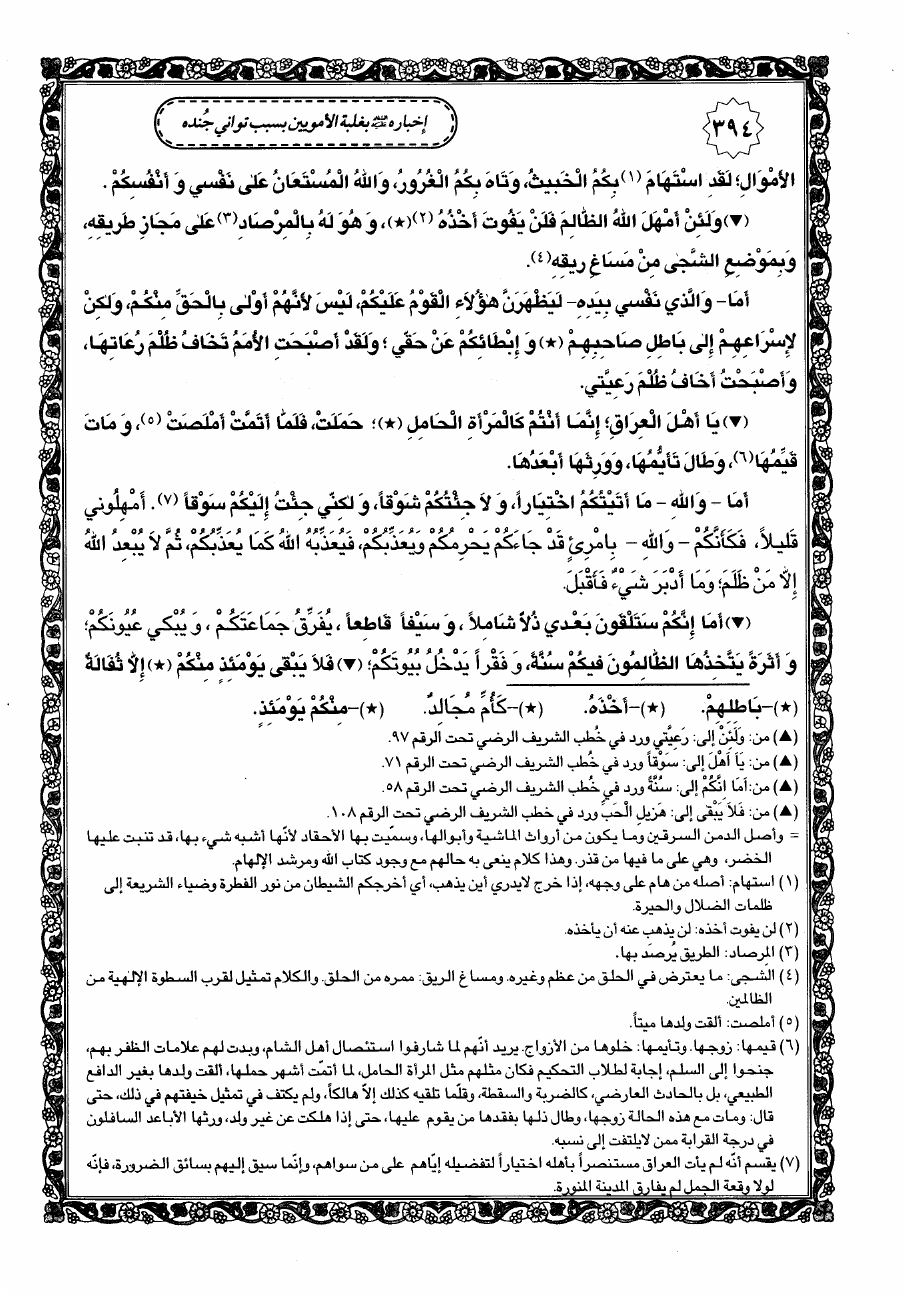 ٣٩٤
إخباره عليه السلام بغلبة الأمويين بسبب تواني جُنده
الأَمْوَالِ؛ لَقَدِ اسْتَهَامَ (١) بِكُمُ الْخَبيثُ، وَتَاهَ بِكُمُ الْغُرُورُ، وَاللهُ الْمُسْتَعَانُ عَلى نَفْسي وَ أَنْفُسِكُمْ .
(▼) وَلَئِنْ أَمْهَلَ اللهُ الظَّالِمَ فَلَنْ يَفُوتَ أَخْذُهُ (٢)(★)، وَ هُوَ لَهُ بِالْمِرْصَادِ(٣) عَلى مَجَازِ طَريقِهِ،
وَبِمَوْضِعِ الشَّجٰى مِنْ مَسَاغِ ريقِهِ(٤).
أَمَا- وَالَّذي نَفْسي بِيَدِهِ- لَيَظْهَرَنَّ هٰؤُلَاءِ الْقَوْمُ عَلَيْكُمْ، لَيْسَ لأَنَّهُمْ أَوْلٰى بِالْحَقِّ مِنْكُمْ، وَلٰكِنْ
لإِسْرَاعِهِمْ إِلٰى بَاطِلِ صَاحِبِهِمْ (★) وَ إِبْطَائِكُمْ عَنْ حَقّي ؛ وَلَقَدْ أَصْبَحَتِ الأُمَمُ تَخَافُ ظُلْمَ رُعَاتِهَا،
وَأَصْبَحْتُ أَخَافُ ظُلْمَ رَعِيَّتي.
(▼) يَا أَهْلَ الْعِرَاقِ؛ إِنَّمَا أَنْتُمْ كَالْمَرْأَةِ الْحَامِلِ (★)؛ حَمَلَتْ، فَلَمَّا أَتَمَّتْ أَمْلَصَتْ (٥)، وَ مَاتَ
قَيِّمُهَا(٦)، وَطَالَ تَأَيُّمُهَا، وَوَرِثَهَا أَبْعَدُهَا.
أَمَا - وَاللهِ - مَا أَتَيْتُكُمُ اخْتِيَاراً، وَ لَا جِئْتُكُمْ شَوْقاً، وَ لٰكِنّي جِئْتُ إِلَيْكُمْ سَوْقاً (٧). أَمْهِلُوني
قَليلاً، فَكَأَنَّكُمْ - وَاللهِ - بِامْرِئٍ قَدْ جَاءَكُمْ يَحْرِمُكُمْ وَيُعَذِّبُكُمْ، فَيُعَذِّبُهُ اللهُ كَمَا يُعَذِّبُكُمْ، ثُمَّ لَا يُبْعِدِ اللهُ
إِلَّا مَنْ ظَلَمَ؛ وَمَا أَدْبَرَ شَيْءٌ فَأَقْبَلَ.
(▼) أَمَا إِنَّكُمْ سَتَلْقَوْنَ بَعْدي ذُلاًّ شَامِلاً ، وَ سَيْفاً قَاطِعاً ، يُفَرِّقُ جَمَاعَتَكُمْ ، وَ يُبْكي عُيُونَكُمْ؛
وَ أَثَرَةً يَتَّخِذُهَا الظَّالِمُونَ فيكُمْ سُنَّةً، وَ فَقْراً يَدْخُلُ بُيُوتَكُمْ؛ (▼) فَلَا يَبْقٰى يَوْمَئِذٍ مِنْكُمْ (★) إِلَّا ثُفَالَةٌ
(★)-بَاطِلِهِمْ. (★)-أَخْذَهُ. (★)-كَأُمِّ مُجَالِدٍ. (★)-مِنْكُمْ يَوْمَئِذٍ.
(▲) من: وَلَئِنْ إلى: رَعِيَّتي ورد في خُطب الشريف الرضي تحت الرقم ٩٧.
(▲) من: يَا أَهْلَ إلى: سَوْقاً ورد في خُطب الشريف الرضي تحت الرقم ٧١.
(▲) من: أَمَا إنَّكُمْ إلى: سُنَّةً ورد في خُطب الشريف الرضي تحت الرقم ٥٨.
(▲) من: فَلَا يَبْقٰى إلى: هَزيلِ الْحَبِّ ورد في خطب الشريف الرضي تحت الرقم ١٠٨.
= وأصل الدمن السرقين وما يكون من أرواث الماشية وأبوالها، وسمّيت بها الأحقاد لأنّها أشبه شيء بها، قد تنبت عليها
الخضر، وهي على ما فيها من قذر. وهذا كلام ينعى به حالهم مع وجود كتاب الله ومرشد الإلهام.
(١) استهام: أصله من هام على وجهه، إذا خرج لايدري أين يذهب، أي أخرجكم الشيطان من نور الفطرة وضياء الشريعة إلى
ظلمات الضلال والحيرة.
(٢) لن يفوت أخذه: لن يذهب عنه أن يأخذه.
(٣) المِرصاد: الطريق يُرصَد بها.
(٤) الشّجى: ما يعترض في الحلق من عظم وغيره. ومساغ الريق: ممره من الحلق. والكلام تمثيل لقرب السطوة الإلهية من
الظالمين.
(٥) أملصت: ألقت ولدها ميتاً.
(٦) قيمها: زوجها. وتأيمها: خلوها من الأزواج. يريد أنّهم لما شارفوا استئصال أهل الشام، وبدت لهم علامات الظفر بهم،
جنحوا إلى السلم، إجابة لطلاب التحكيم فكان مثلهم مثل المرأة الحامل، لما أتمّت أشهر حملها، ألقت ولدها بغير الدافع
الطبيعي، بل بالحادث العارضي، كالضربة والسقطة، وقلّما تلقيه كذلك إلاّ هالكاً، ولم يكتف في تمثيل خيفتهم في ذلك، حتى
قال: ومات مع هذه الحالة زوجها، وطال ذلها بفقدها من يقوم عليها، حتى إذا هلكت عن غير ولد، ورثها الأباعد السافلون
في درجة القرابة ممن لايلتفت إلى نسبه.
(٧) يقسم أنّه لم يأت العراق مستنصراً بأهله اختياراً لتفضيله إيّاهم على من سواهم، وإنّما سيق إليهم بسائق الضرورة، فإنّه
لولا وقعة الجمل لم يفارق المدينة المنورة.